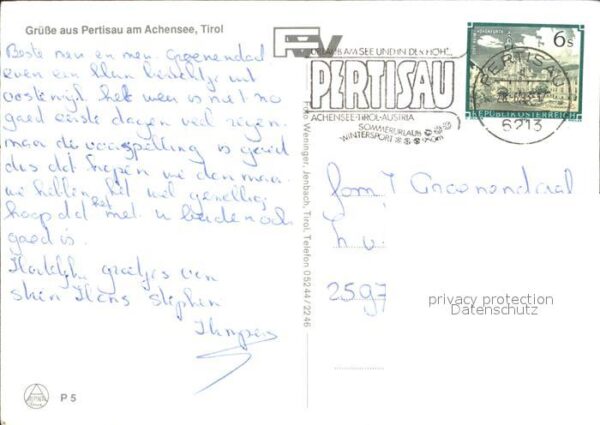 Grüße aus Pertisau am Achensee, Tirol
Beste men en mevr. Groenendal
even een klein berichtje uit
oostenrijk het weer is niet zo
goed eerste dagen veel regen.
maar de voorspelling is goed
dus dat hopen we dan maar.
we hebben het wel gezellig
hoop dat het met u beiden ook
goed is.
Hartelijke groetjes van
Hans Stephen
URLAUB AM SEE UND IN DEN HÖH'..
PERTISAU
ACHENSEE·TIROL·AUSTRIA
SOMMERURLAUB
WINTERSPORT 950m
PERTISAU
6213
6 S
REPUBLIK ÖSTERREICH
Foto Weninger, Jenbach, Tirol, Telefon 05244/2246
Fam. J Groenendaal
2597
privacy protection
Datenschutz
P 5